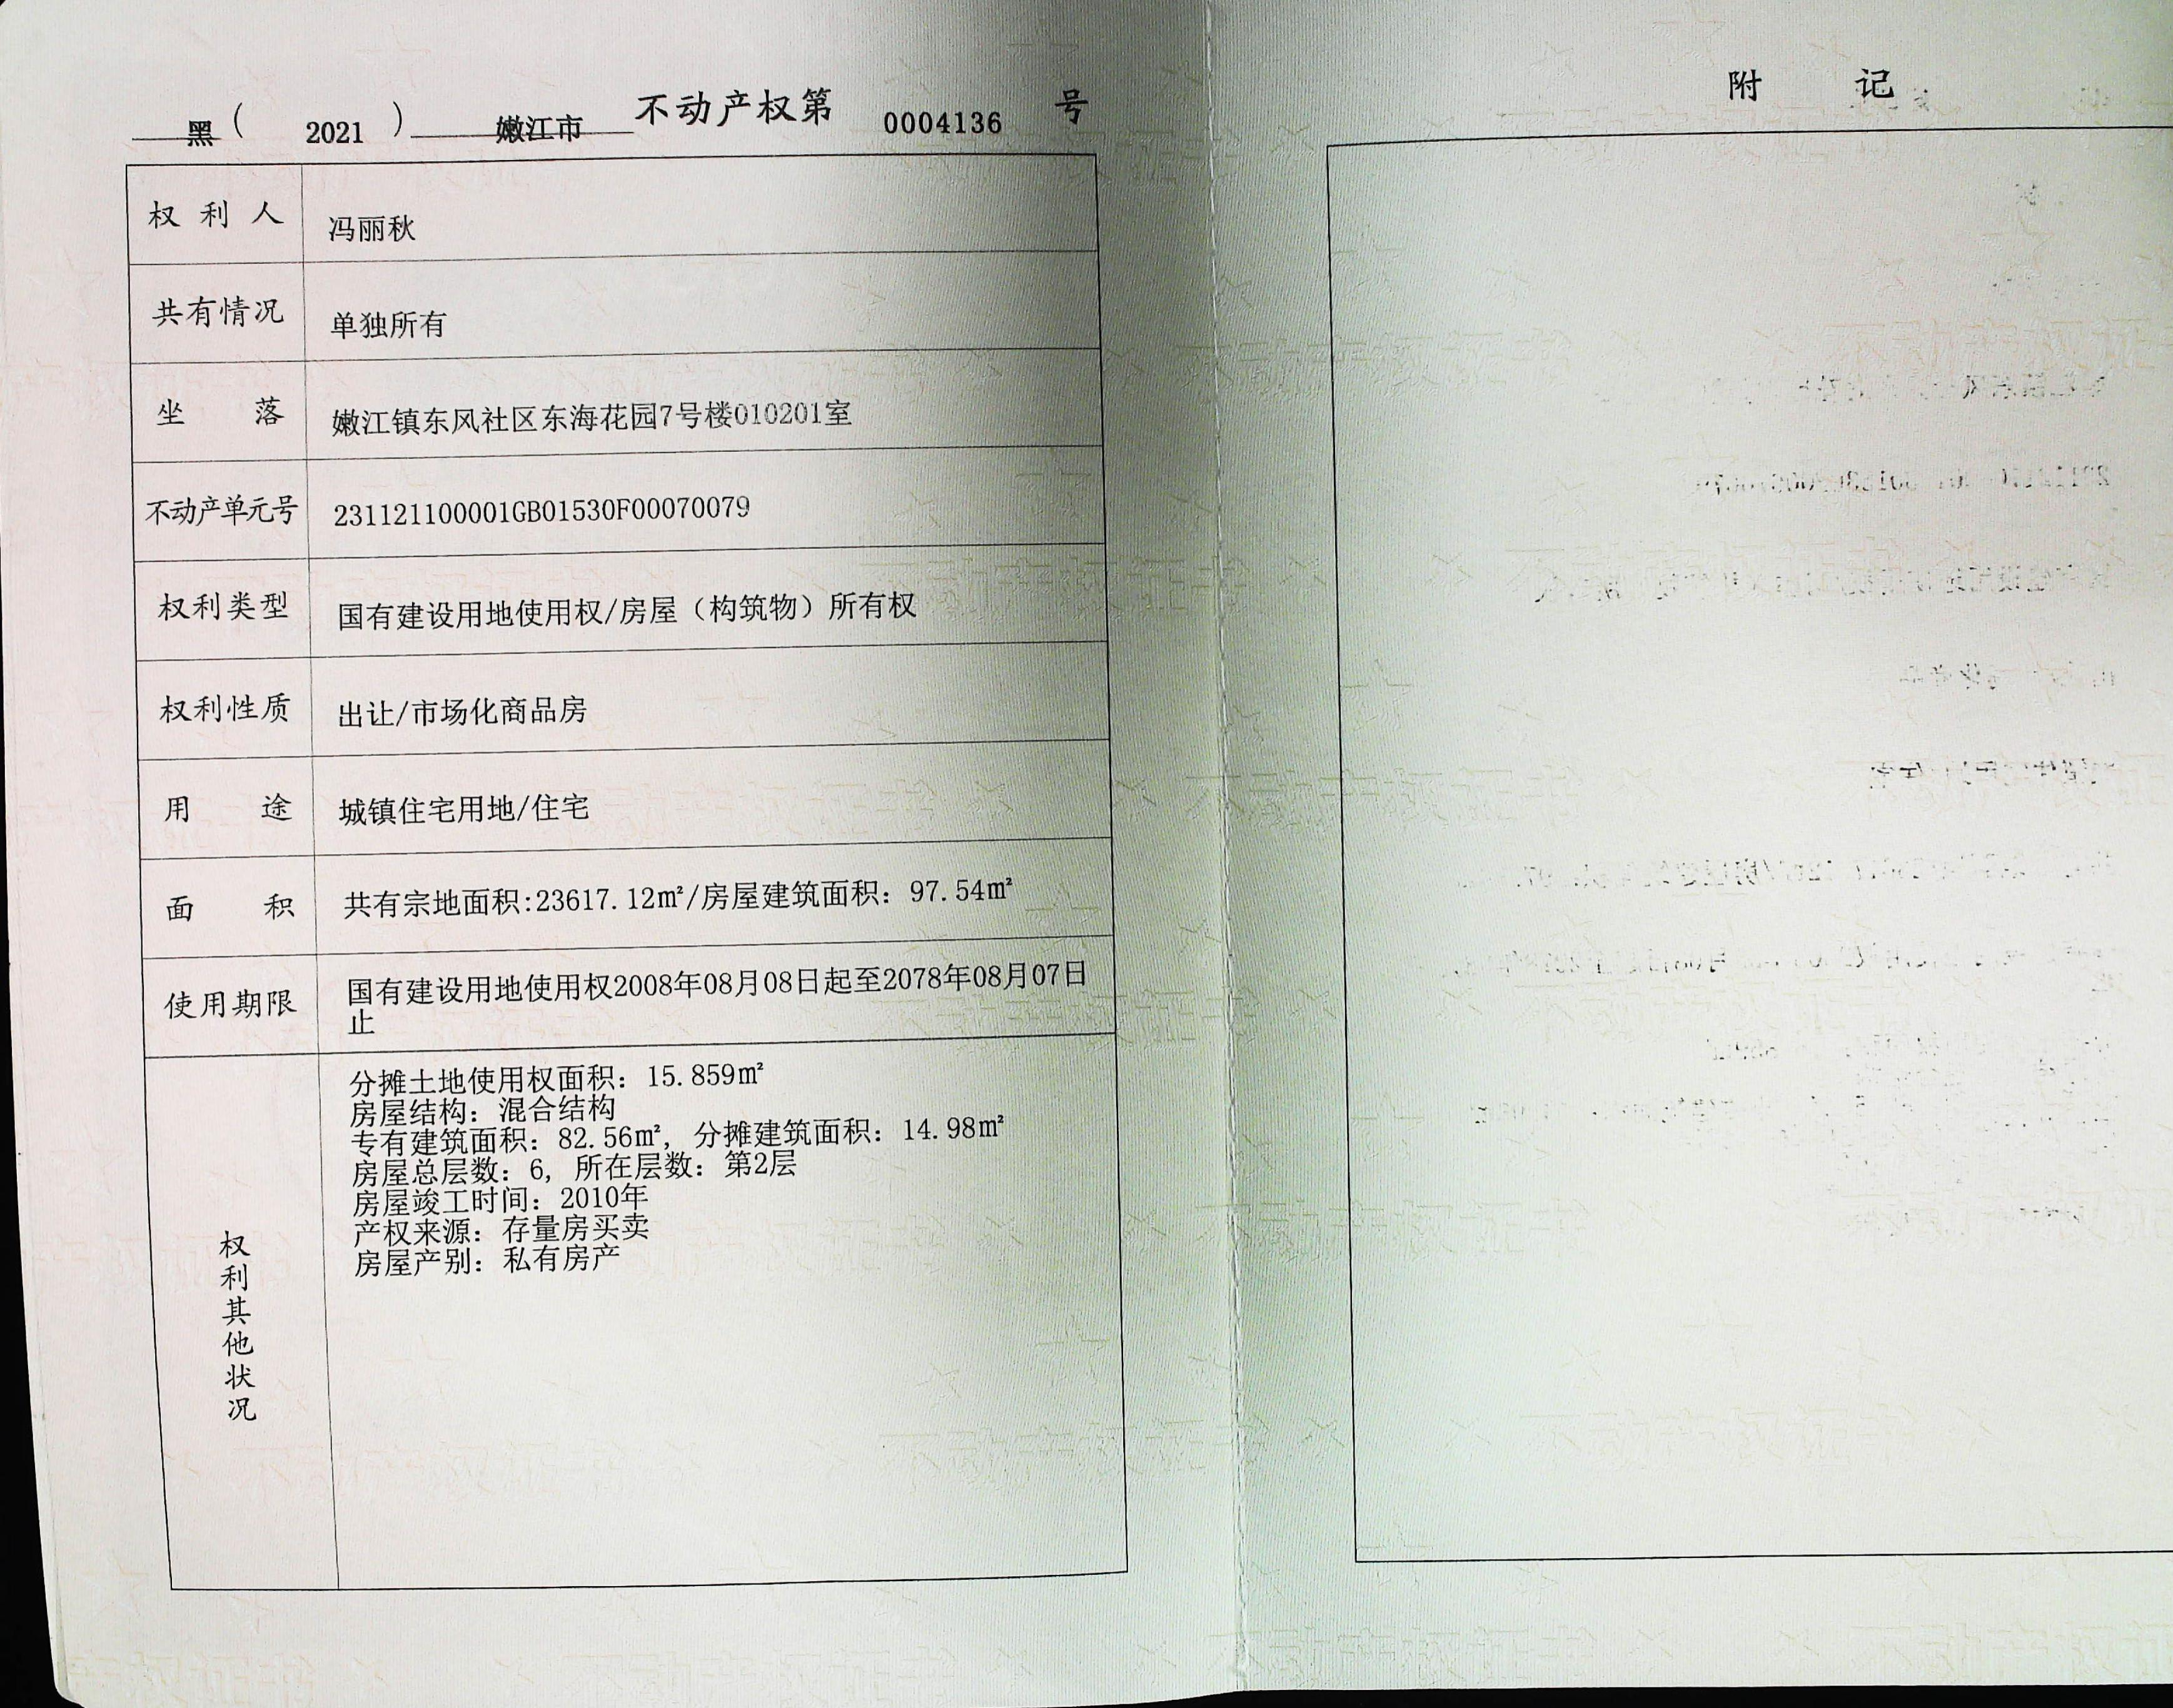 黑(2021)嫩江市不动产权第0004136号
权利人 冯丽秋
共有情况 单独所有
坐落 嫩江镇东风社区东海花园7号楼010201室
不动产单元号 231121100001GB01530F00070079
权利类型 国有建设用地使用权/房屋（构筑物）所有权
权利性质 出让/市场化商品房
用途 城镇住宅用地/住宅
面积 共有宗地面积:23617.12㎡/房屋建筑面积：97.54㎡
使用期限 国有建设用地使用权2008年08月08日起至2078年08月07日
止
权利其他状况
分摊土地使用权面积：15.859㎡
房屋结构：混合结构
专有建筑面积：82.56㎡，分摊建筑面积：14.98㎡
房屋总层数：6，所在层数：第2层
房屋竣工时间：2010年
产权来源：存量房买卖
房屋产别：私有房产
附记